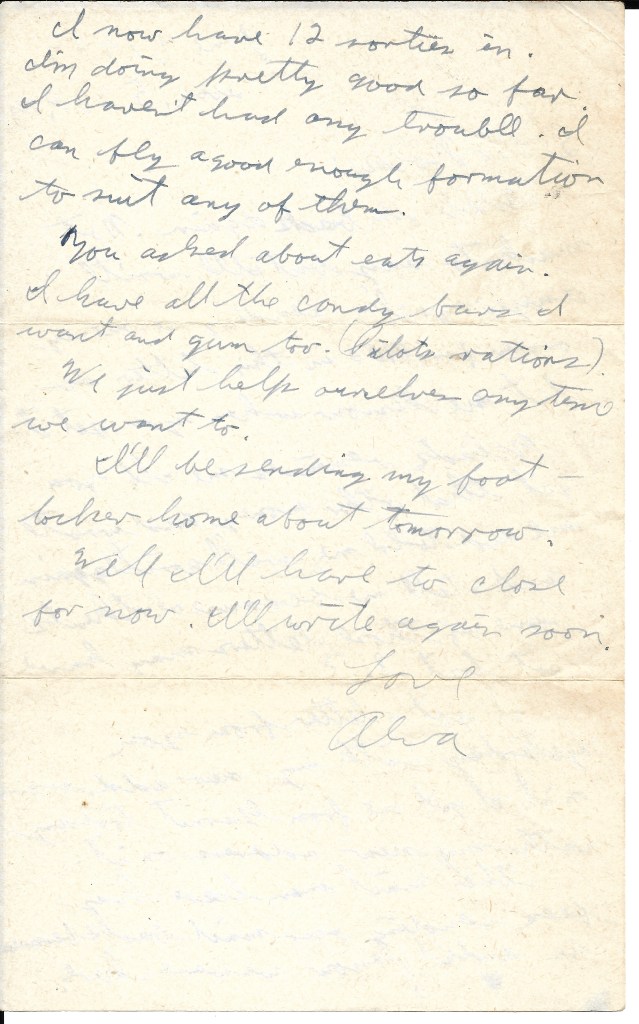 I now have 12 sorties in.
I'm doing pretty good so far.
I haven't had any trouble. I
can fly a good enough formation
to suit any of them.
You asked about eats again.
I have all the candy bars I
want and gum too. (Pilots rations).
We just help ourselves any time
we want to.
I'll be sending my foot-
locker home about tomorrow.
Well I'll have to close
for now. I'll write again soon.
Love
Alva